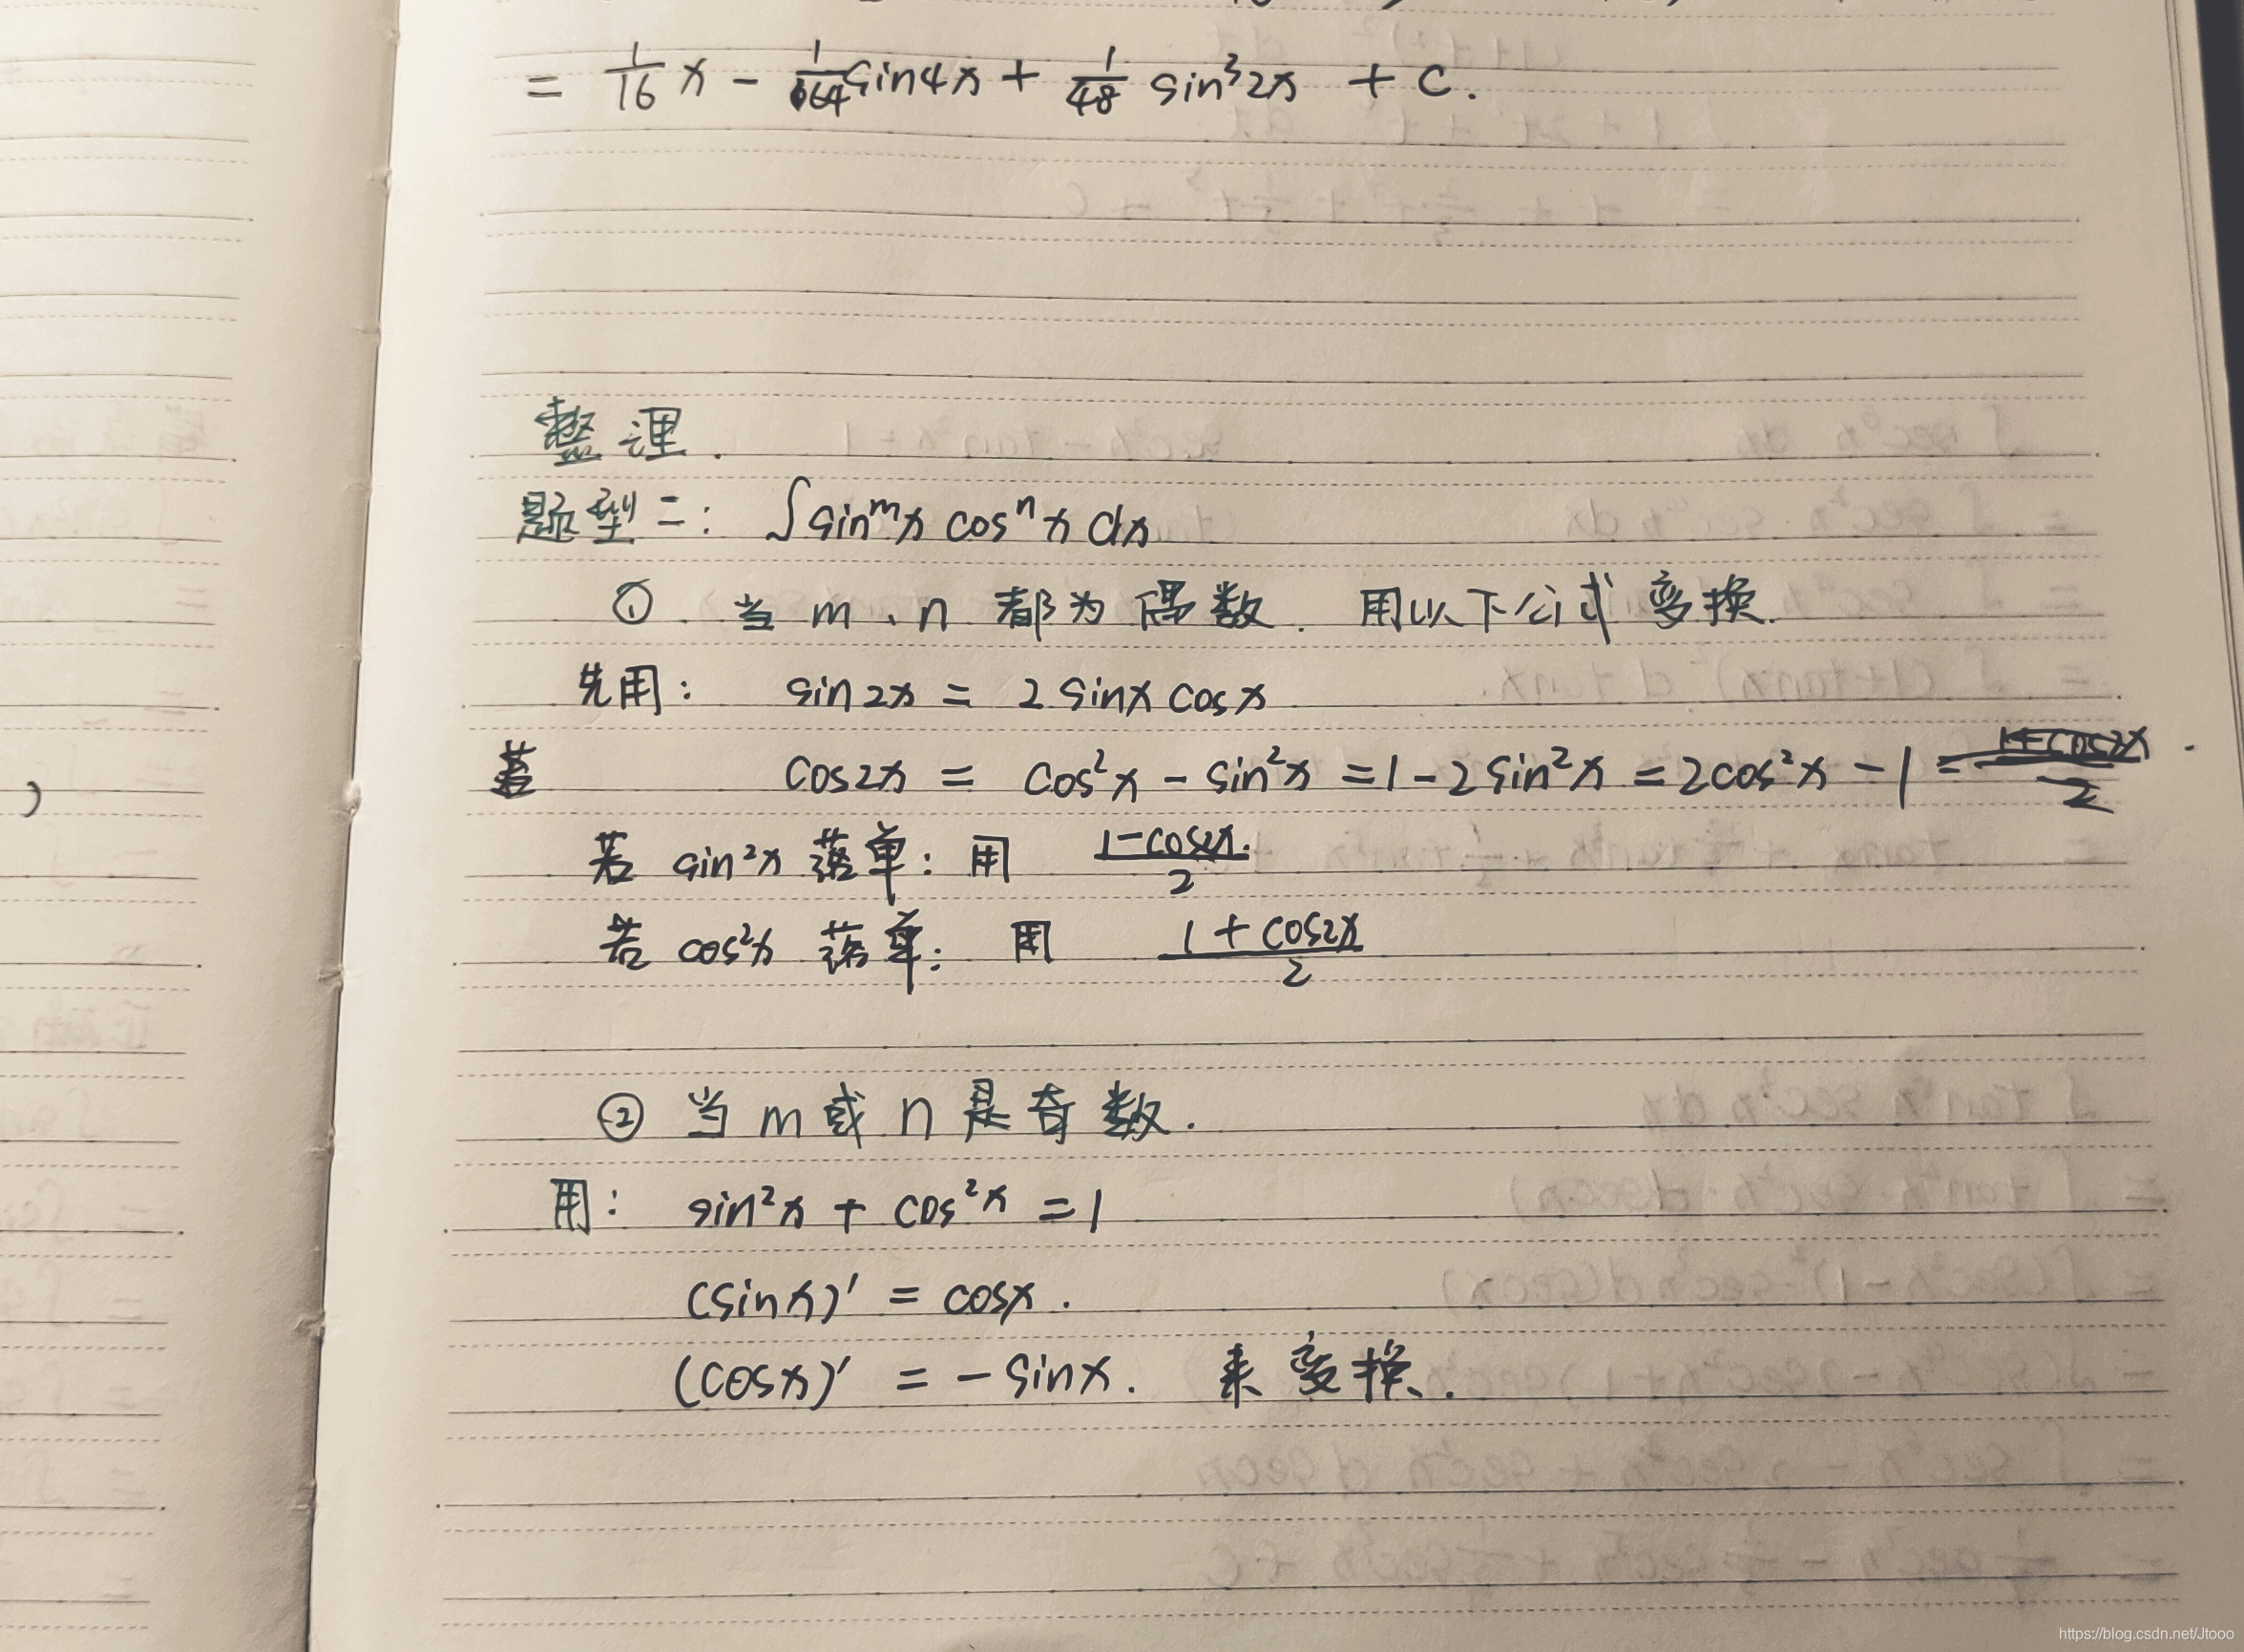 = 1/16 x - 1/64 sin4x + 1/48 sin³2x + C.
整理.
题型二: ∫sinᵐx cosⁿx dx
① 当 m、n 都为偶数. 用以下公式变换.
先用: sin2x = 2 sinx cosx
cos2x = cos²x - sin²x = 1 - 2sin²x = 2cos²x - 1
若 sin²x 落单: 用 (1-cos2x)/2
若 cos²x 落单: 用 (1+cos2x)/2
② 当 m 或 n 是奇数.
用: sin²x + cos²x = 1
(sinx)' = cosx.
(cosx)' = -sinx. 来变换.
https://blog.csdn.net/Jtooo